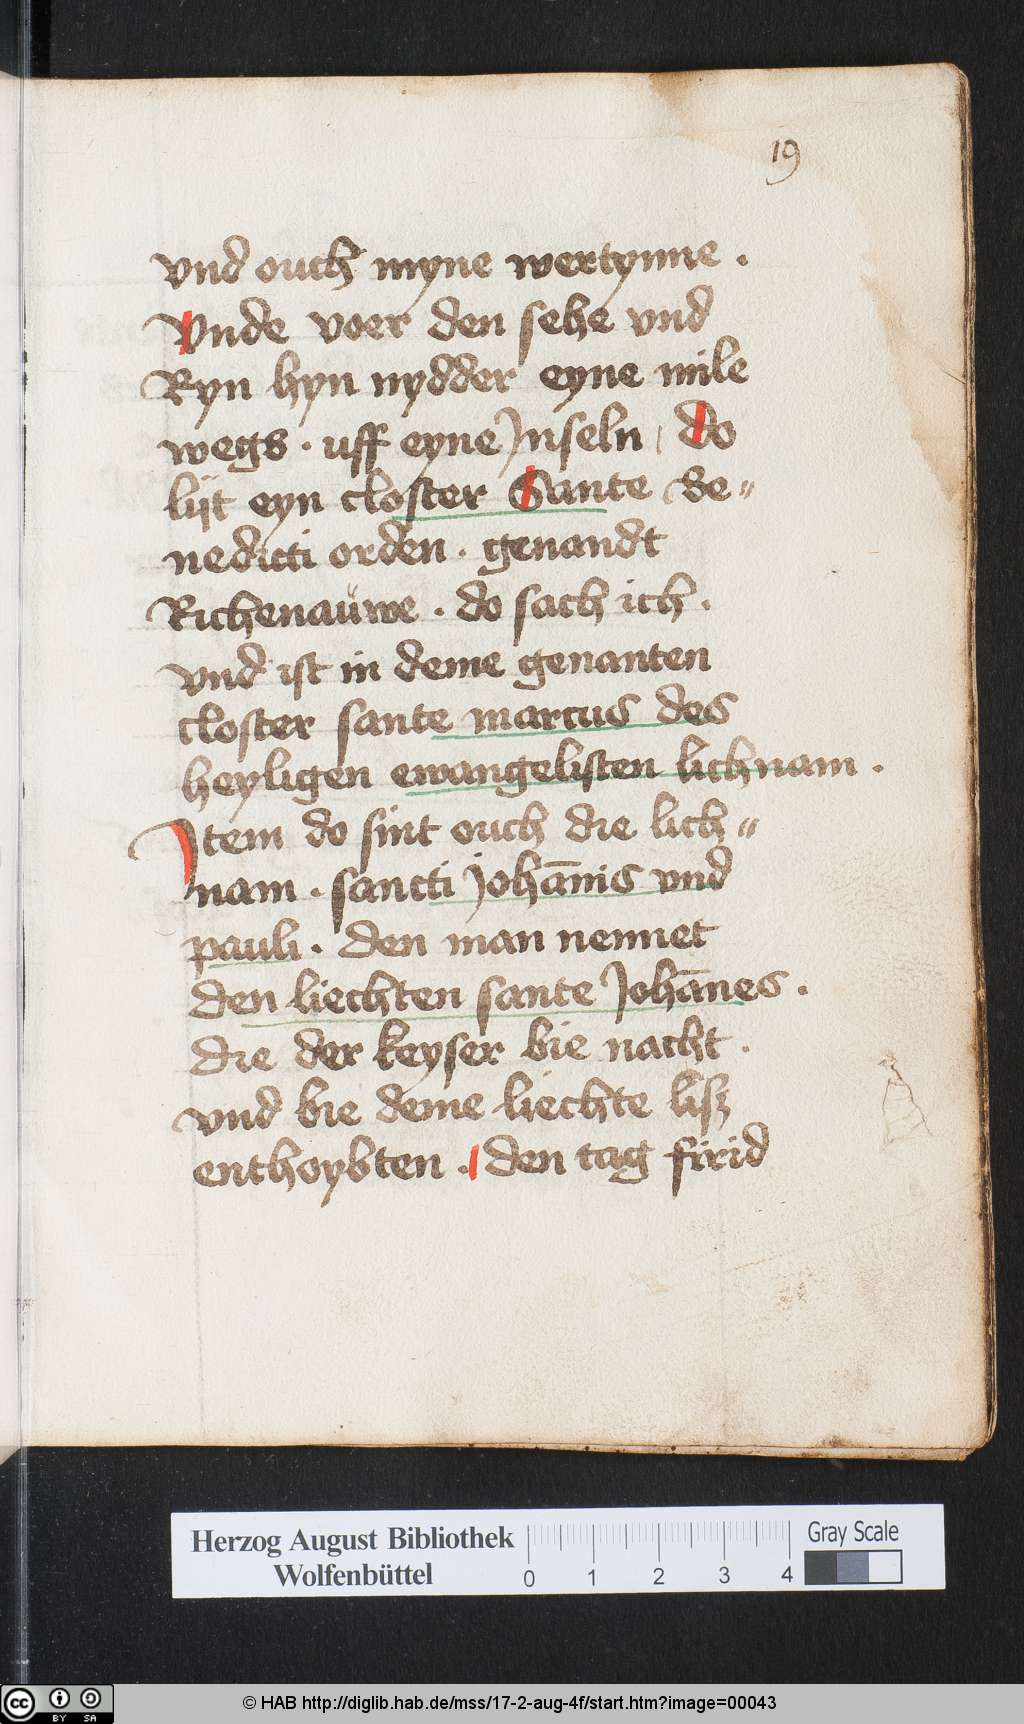 19
vnd ouch myne wertynne .
Vnde voer den sehe vnd
Ryn hyn nydder eyne mile
wegs . uff eyne Jnseln / do
lijt eyn closter Sante Be〃
nedicti orden . genandt
Richenaüwe . do sach ich .
vnd ist in deme genanten
closter sante marcus des
heyligen ewangelisten lichnam .
Jtem do sint ouch die lich〃
nam . sancti Johān̄is vnd
pauli . den man nennet
den liechten sante Johānes .
die der keyser bie nacht .
vnd bie deme liechte lisz
enthoybten . den tag
Herzog August Bibliothek
Wolfenbüttel
0 1 2 3 4
Gray Scale
cc BY SA
© HAB http://diglib.hab.de/mss/17-2-aug-4f/start.htm?image=00043